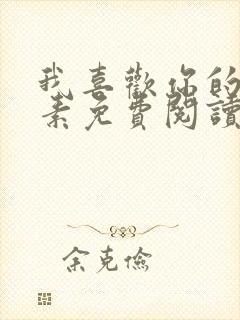 我喜歡你的
素免費閱讀
余克儉